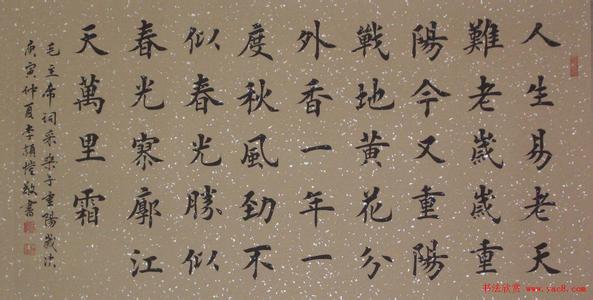 人生易老天
難老歲歲重
陽今又重陽
戰地黃花分
外香一年一
度秋風勁不
似春光勝似
春光寥廓江
天萬里霜
毛主席詞采桑子重陽歲次
庚寅仲夏李敬書
书法欣赏 www.yac8.com